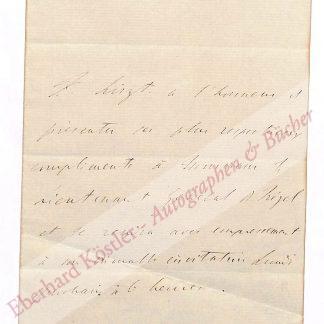 F. Liszt a l'honneur de
présenter ses plus respectueux
compliments à Monsieur le
Lieutenant Général
et se rendra avec empressement
à son aimable invitation Lundi
prochain à 6 heures.
Eberhard Köstler · Autographen & Bücher